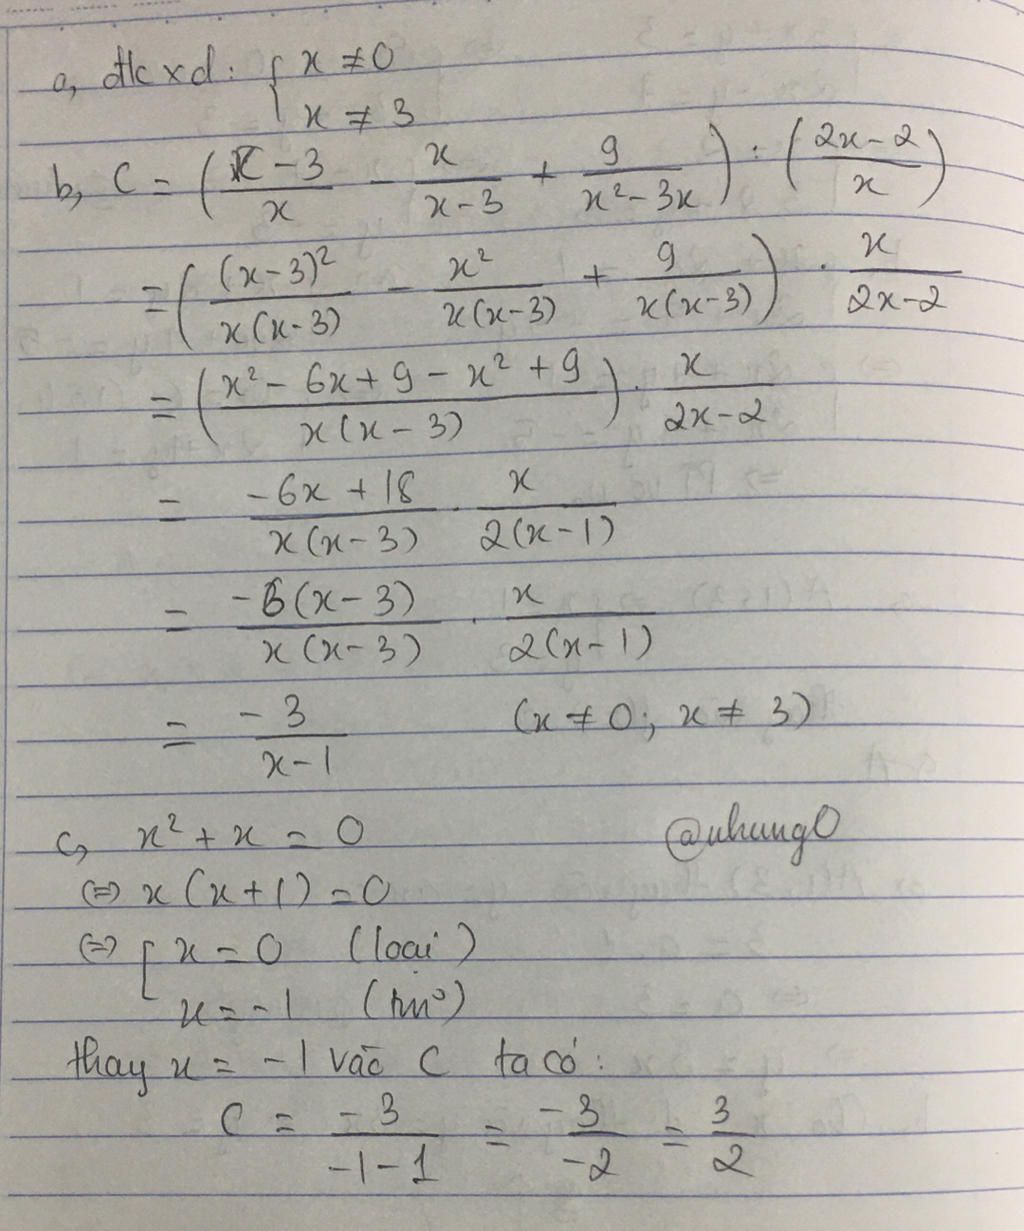 a, đkxđ: { x ≠ 0
x ≠ 3
b, C = ( (x - 3)/x - x/(x - 3) + 9/(x² - 3x) ) : ( (2x - 2)/x )
= ( (x - 3)²/(x(x - 3)) - x²/(x(x - 3)) + 9/(x(x - 3)) ) . x/(2x - 2)
= ( (x² - 6x + 9 - x² + 9)/(x(x - 3)) ) . x/(2x - 2)
= (-6x + 18)/(x(x - 3)) . x/(2(x - 1))
= (-6(x - 3))/(x(x - 3)) . x/(2(x - 1))
= -3/(x - 1) (x ≠ 0; x ≠ 3)
c, x² + x = 0 @nhung0
(=) x(x + 1) = 0
(=) [ x = 0 (loại)
x = -1 (tm)
thay x = -1 vào C ta có:
C = -3/(-1 - 1) = -3/-2 = 3/2